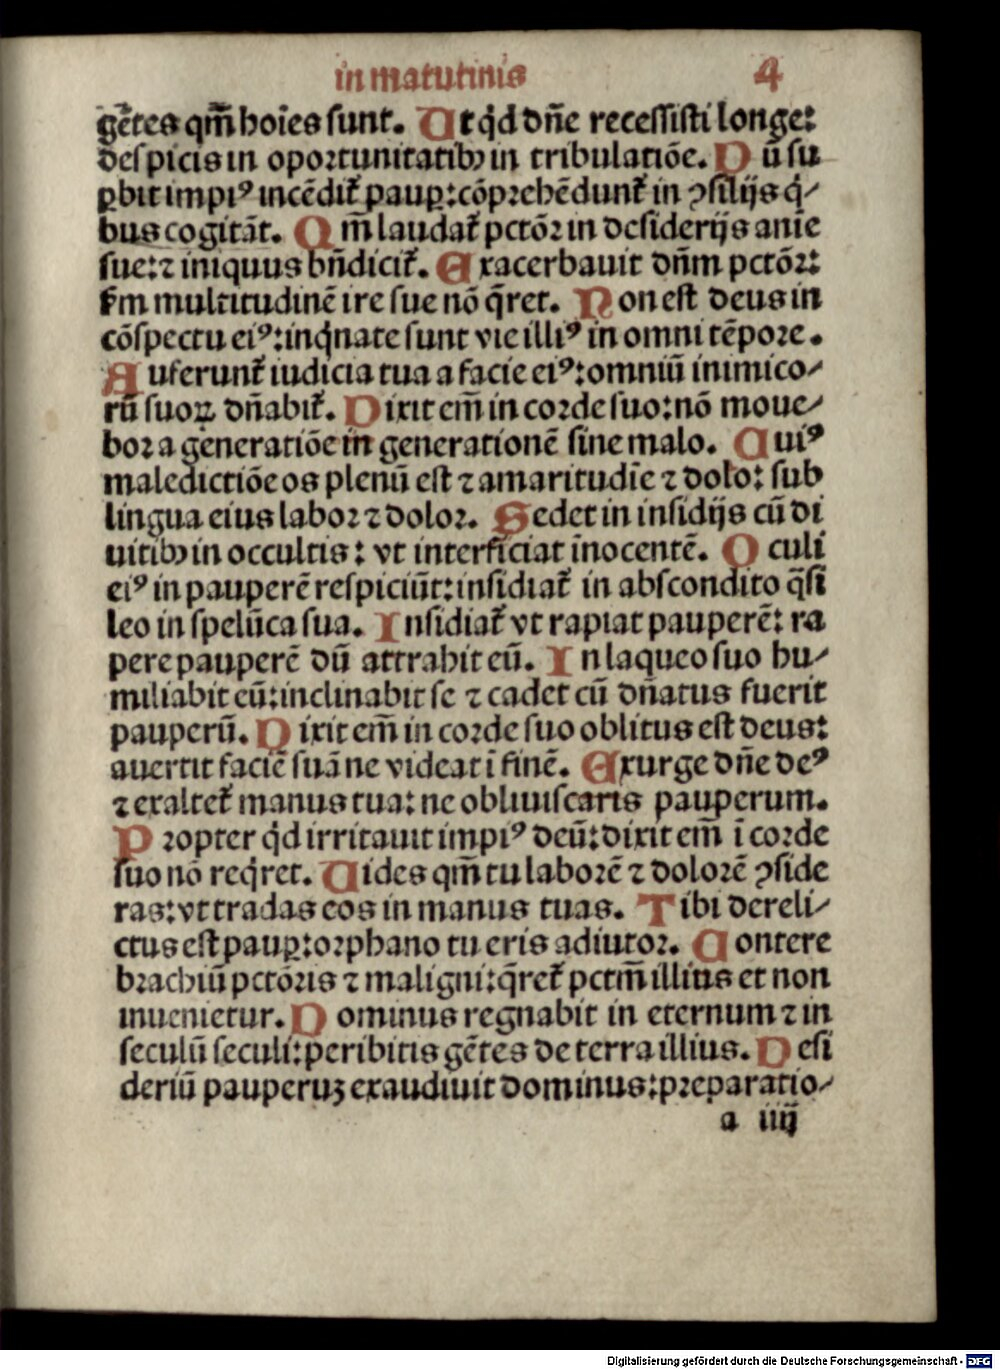 in matutinis 4
gētes qm̄ hoīes sunt. Ut qͥd dn̄e recessisti longe:
despicis in oportunitatibꝫ in tribulatiōe. Dū su
ꝑbit impiꝰ incēdit᷑ pauꝑ: cōprehēdunt᷑ in ꝯsilijs qͥ-
bus cogitāt. Qm̄ laudat᷑ pctōꝛ in desiderijs anīe
sue: ⁊ iniquus bn̄dicit᷑. Exacerbauit dn̄m pctōꝛ:
ẜm multitudinē ire sue nō q̄ret. Non est deus in
cōspectu eiꝰ: inqͥnate sunt vie illiꝰ in omni tēpoꝛe.
Auferunt᷑ iudicia tua a facie eiꝰ: omniū inimico-
rū suoꝝ dn̄abit᷑. Dixit em̄ in coꝛde suo: nō moue-
boꝛ a generatiōe in generationē sine malo. Cuiꝰ
maledictiōe os plenū est ⁊ amaritudīe ⁊ dolo: sub
lingua eius laboꝛ ⁊ doloꝛ. Sedet in insidijs cū di
uitibꝫ in occultis: vt interficiat īnocentē. Oculi
eiꝰ in pauperē respiciūt: insidiat᷑ in abscondito q̄si
leo in spelūca sua. Insidiat᷑ vt rapiat pauperē: ra
pere pauperē dū attrahit eū. In laqueo suo hu-
miliabit eū: inclinabit se ⁊ cadet cū dn̄atus fuerit
pauperū. Dixit em̄ in coꝛde suo oblitus est deus:
auertit faciē suā ne videat ī finē. Exurge dn̄e deꝰ
⁊ exaltet᷑ manus tua: ne obliuiscaris pauperum.
Pꝛopter qͥd irritauit impiꝰ deū: dixit em̄ ī coꝛde
suo nō reqͥret. Uides qm̄ tu laboꝛē ⁊ doloꝛē ꝯside
ras: vt tradas eos in manus tuas. Tibi dereli-
ctus est pauꝑ: oꝛphano tu eris adiutoꝛ. Contere
bꝛachiū pctōꝛis ⁊ maligni: q̄ret᷑ pctm̄ illius et non
inuenietur. Dominus regnabit in eternum ⁊ in
seculū seculi: peribitis gētes de terra illius. Desi
deriū pauperuꝫ exaudiuit dominus: pꝛeparatio-
a iiij
Digitalisierung gefördert durch die Deutsche Forschungsgemeinschaft - DFG